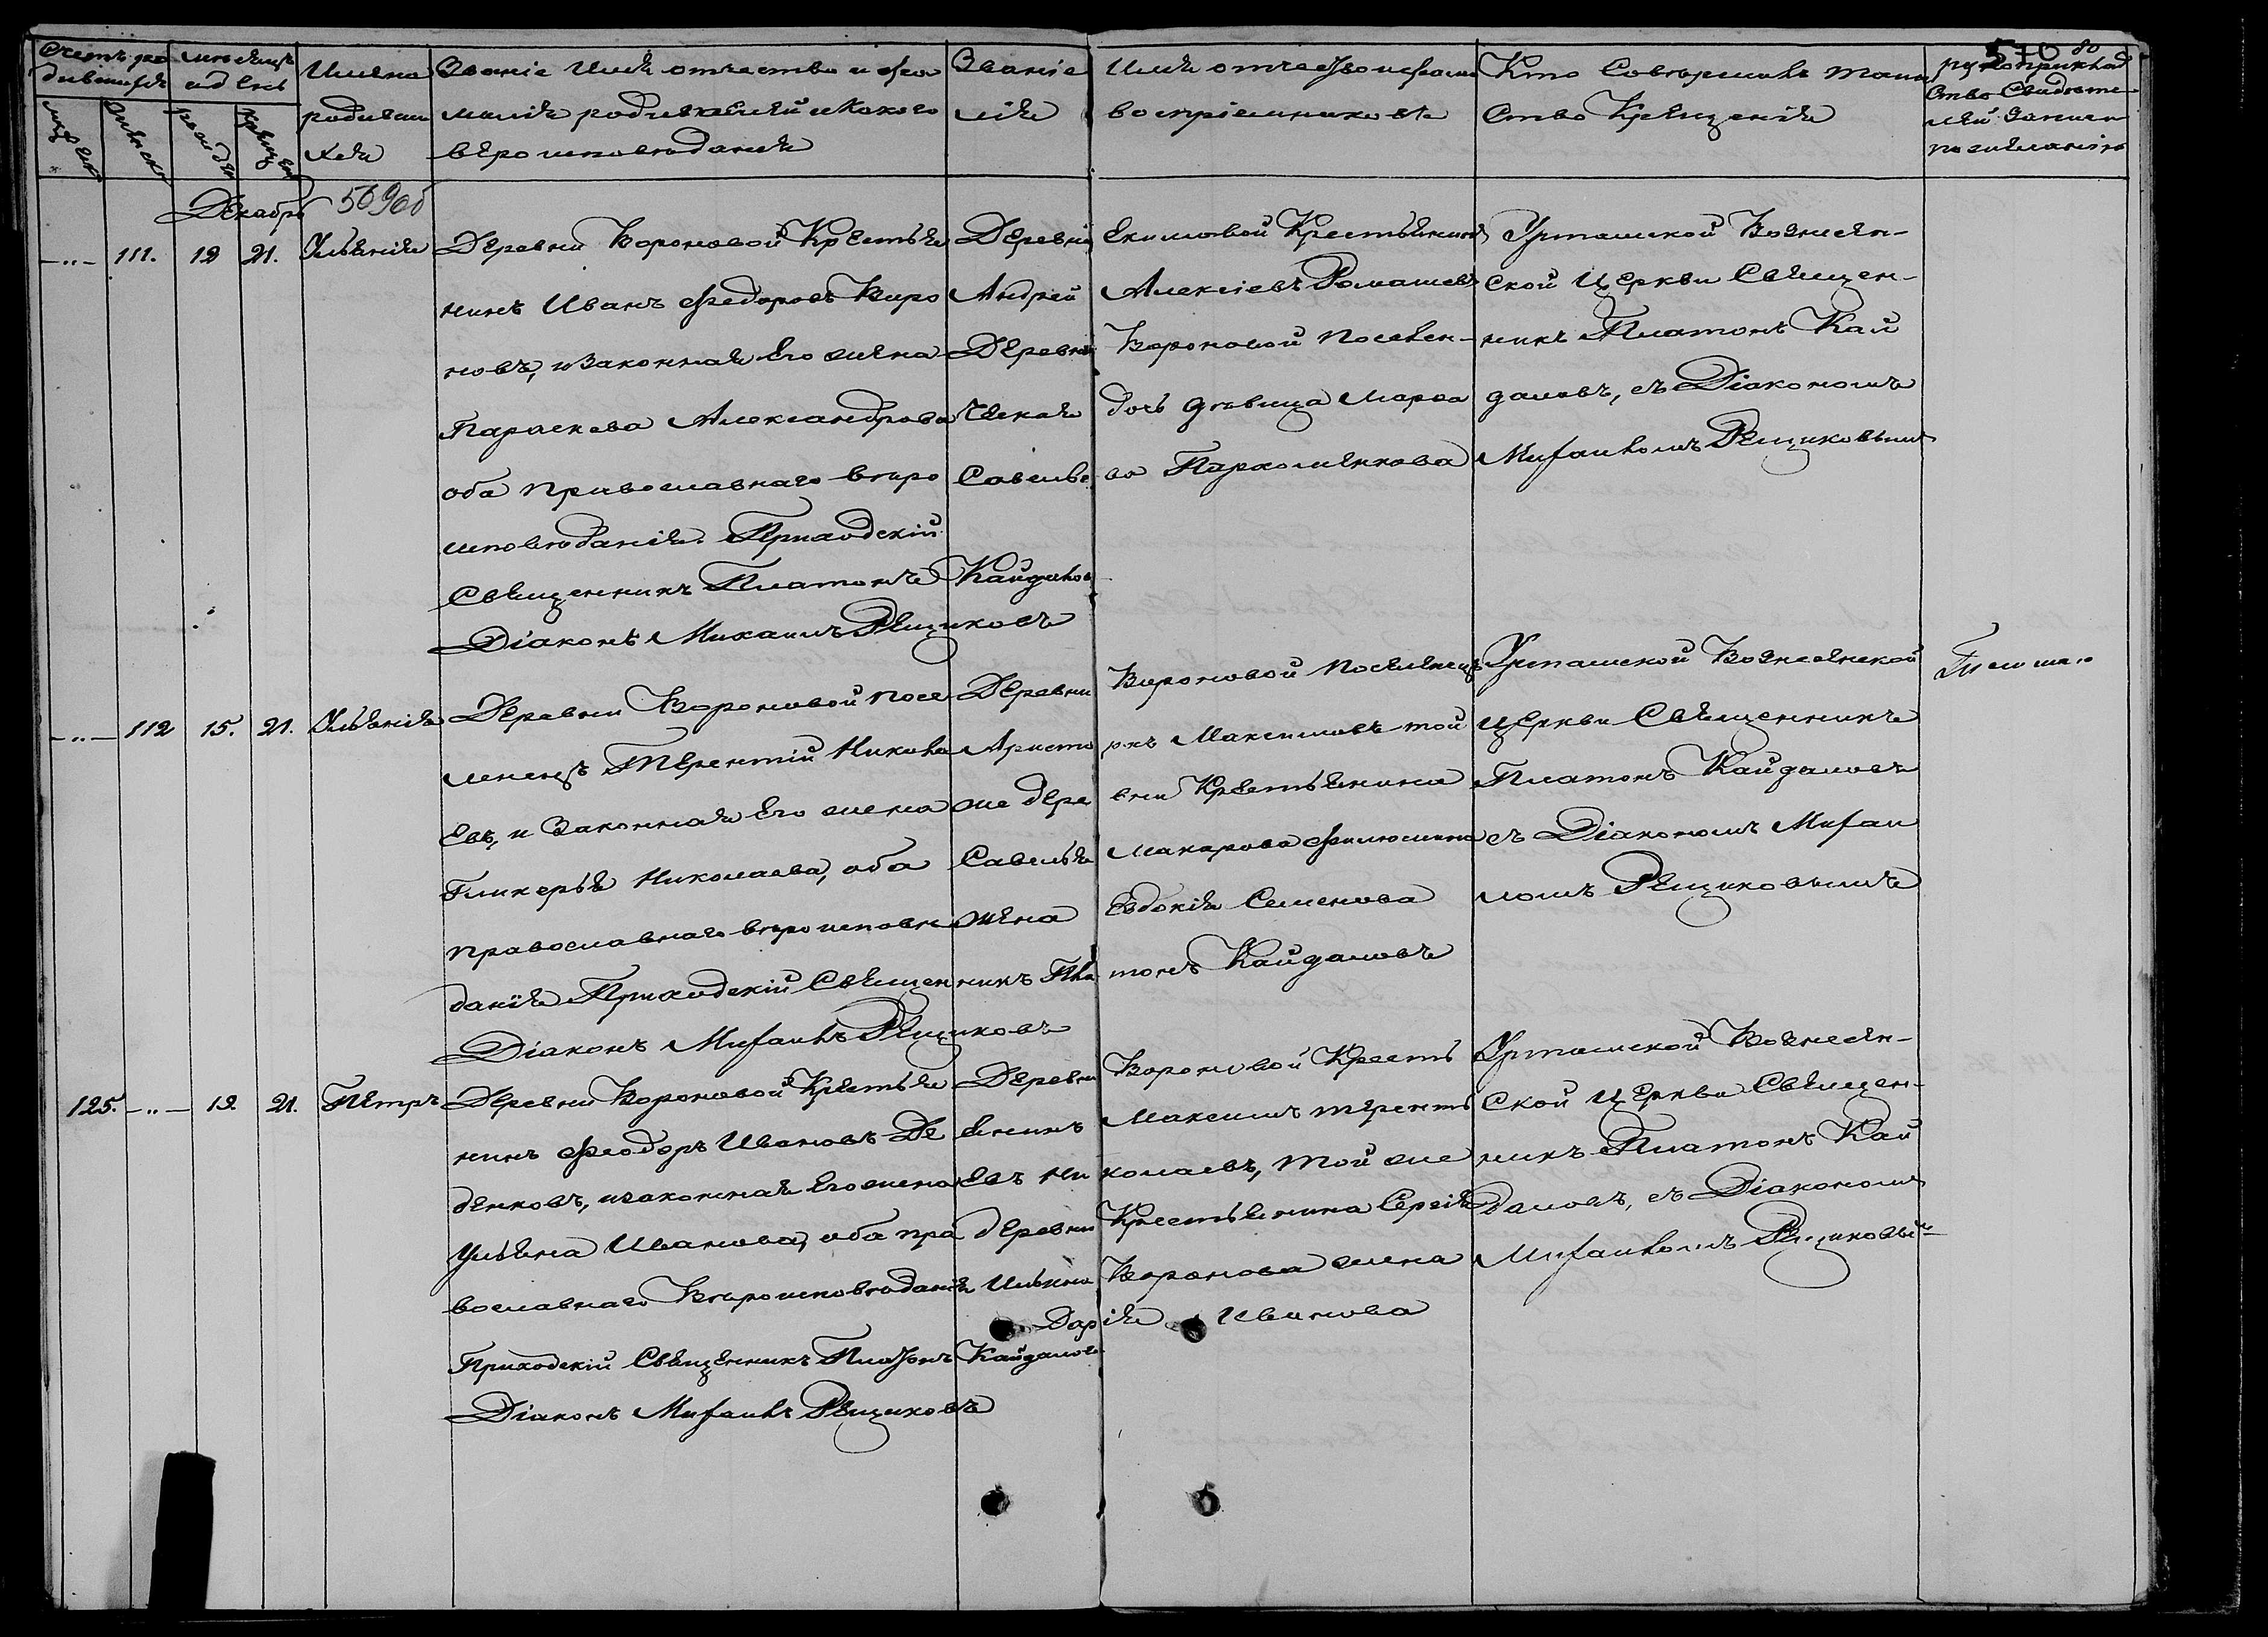 570 80
Счетъ ро
дившихся
мѣсяцъ
и день
Имена
родивши
хся
Званіе имя отчество и фа
милія родителей и какого
вероисповѣданія
Званіе
имя отчество и фами
лія
воспріемниковъ
Кто совершилъ таин
ство крещенія
рукоприклад
ство свидѣте
лей записи
по желанію
муж
женск
рожден
крещен
Декабрь
569об
111. 12 21. Ульянія
Деревни Вороновой Крестья
нинъ Иванъ Федоровъ Воро
новъ, и Законная Его жена
Параскева Александрова
оба православнаго веро
исповѣданія. Приходскій
Священникъ Платонъ Кайдаловъ
Діаконъ Михаилъ Рещиковъ
Деревни Екимовой Крестьянинъ
Андрей Алексіевъ Ромашевъ
Деревни Вороновой Поселен-
ческая дочь девица Марѳа
Савельева Пархоменкова
Урташской Вознесен-
ской Церкви Священ-
никъ Платонъ Кай
даловъ, съ Діакономъ
Михаиломъ Рещиковымъ
112 15. 21. Ульянія
Деревни Вороновой посе
ленецъ Терентій Никола
Евъ, и Законная Его жена
Гликерья Николаева, оба
православнаго вероисповѣ
данія Приходскій Священникъ Платонъ Кайдаловъ
Діаконъ Михаилъ Рещиковъ
Деревни Вороновой Поселенецъ
Максимовъ той
же деревни Крестьянина
Савелья Макарова
жена Евдокія Семенова
Урташской Вознесенской
Церкви Священникъ
Платонъ Кайдаловъ
съ Діакономъ Михаи
ломъ Рещиковымъ
125. 19. 21. Петръ
Деревни Вороновой Крестья
нинъ Феодоръ Ивановъ Де
денковъ, и законная Его жена
Ульяна Иванова, оба пра
вославнаго Вероисповѣданія
Приходскій Священникъ Платонъ Кайдаловъ
Діаконъ Михаилъ Рещиковъ
Деревни Вороновой Кресть
янинъ Максимъ Терентъ
евъ Николаевъ, той же
деревни Крестьянина Сергія
Ильина Воронова жена
Дарія Иванова
Урташской Вознесен-
ской Церкви Священ-
никъ Платонъ Кай
даловъ, съ Діакономъ
Михаиломъ Рещиковы